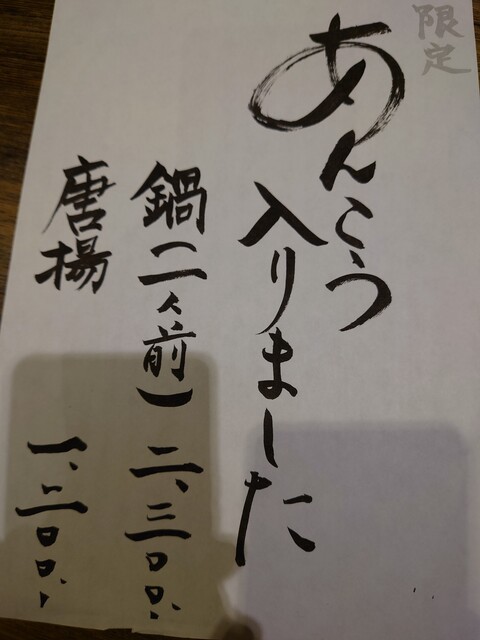 限定
あんこう
入りました
鍋(二人前) 二、三〇〇、
唐揚 一、二〇〇、